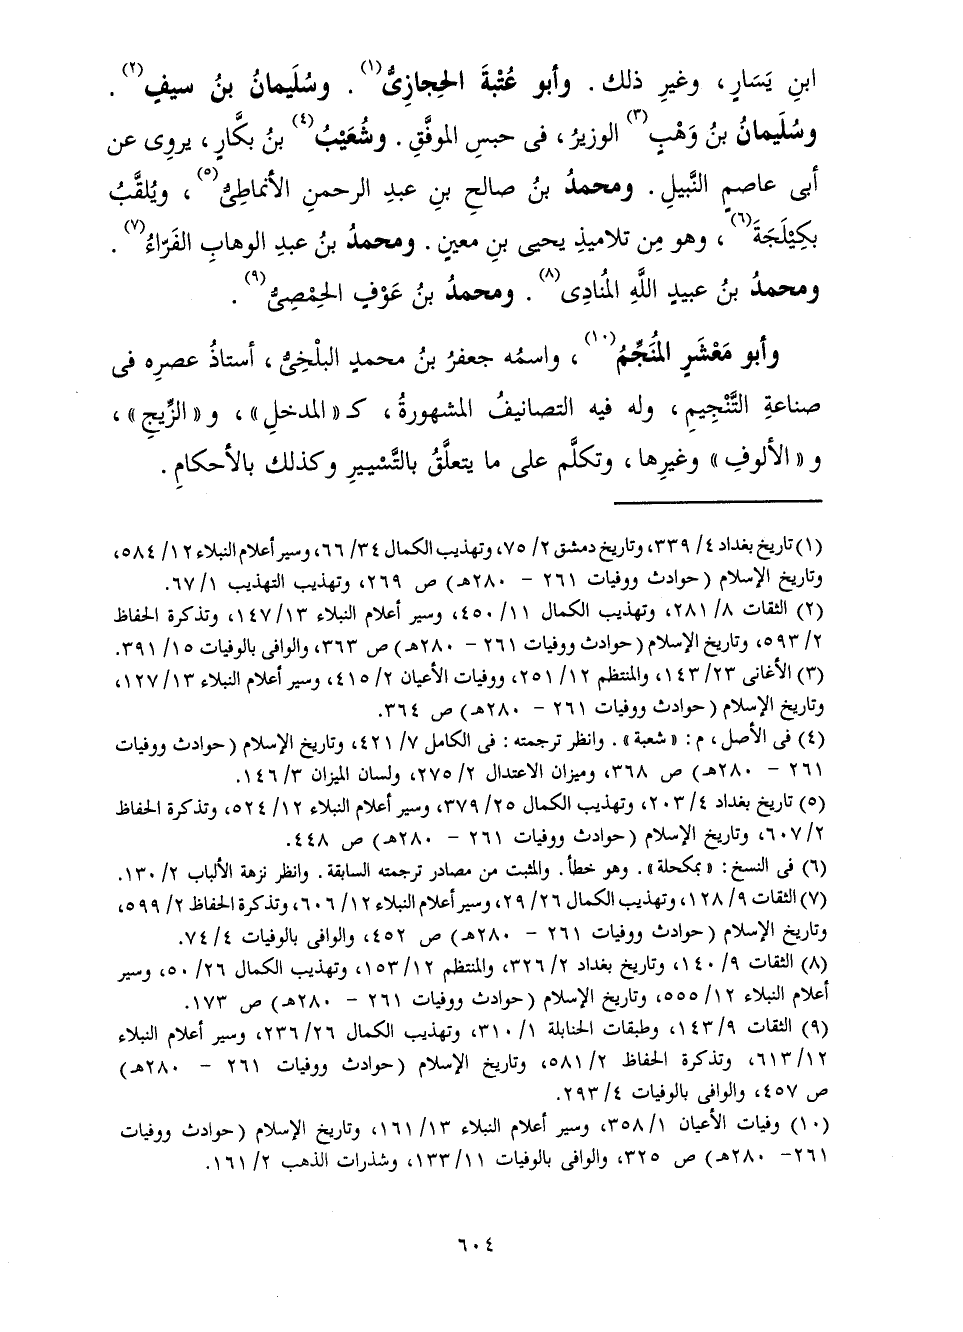 ابنِ يَسَارٍ، وغيرِ ذلك. وأبو عُتْبةَ الحِجازِىُّ(١). وسُلَيمانُ بنُ سيفٍ(٢).
وسُلَيمانُ بنُ وَهْبٍ(٣) الوزيرُ، فى حبسِ الموفَّقِ. وشُعَيْبُ(٤) بنُ بكَّارٍ، يروِى عن
أبى عاصمٍ النَّبيلِ. ومحمدُ بنُ صالحِ بنِ عبدِ الرحمنِ الأنماطِىُّ(٥)، ويُلقَّبُ
بكِيْلَجَةَ(٦)، وهو مِن تلاميذِ يحيى بنِ معينٍ. ومحمدُ بنُ عبدِ الوهابِ الفَرّاءُ(٧).
ومحمدُ بنُ عبيدِ اللَّهِ المُنادِى(٨). ومحمدُ بنُ عَوْفٍ الحِمْصِىُّ(٩).
وأبو مَعْشَرٍ المُنَجِّمُ(١٠)، واسمُه جعفرُ بنُ محمدٍ البلْخِىُّ، أستاذُ عصرِه فى
صناعةِ التَّنْجيمِ، وله فيه التصانيفُ المشهورةُ، كـ«المدخلِ»، و«الزِّيجِ»،
و«الألوفِ» وغيرِها، وتكلَّم على ما يتعلَّقُ بالتَّسْييرِ وكذلك بالأحكامِ.
(١) تاريخ بغداد ٤/ ٣٣٩، وتاريخ دمشق ٢/ ٧٥، وتهذيب الكمال ٣٤/ ٦٦، وسير أعلام النبلاء ١٢/ ٥٨٤،
وتاريخ الإسلام (حوادث ووفيات ٢٦١ - ٢٨٠هـ) ص ٢٦٩، وتهذيب التهذيب ١/ ٦٧.
(٢) الثقات ٨/ ٢٨١، وتهذيب الكمال ١١/ ٤٥٠، وسير أعلام النبلاء ١٣/ ١٤٧، وتذكرة الحفاظ
٢/ ٥٩٣، وتاريخ الإسلام (حوادث ووفيات ٢٦١ - ٢٨٠هـ) ص ٣٦٣، والوافى بالوفيات ١٥/ ٣٩١.
(٣) الأغانى ٢٣/ ١٤٣، والمنتظم ١٢/ ٢٥١، ووفيات الأعيان ٢/ ٤١٥، وسير أعلام النبلاء ١٣/ ١٢٧،
وتاريخ الإسلام (حوادث ووفيات ٢٦١ - ٢٨٠هـ) ص ٣٦٤.
(٤) فى الأصل، م: «شعبة». وانظر ترجمته: فى الكامل ٧/ ٤٢١، وتاريخ الإسلام (حوادث ووفيات
٢٦١ - ٢٨٠هـ) ص ٣٦٨، وميزان الاعتدال ٢/ ٢٧٥، ولسان الميزان ٣/ ١٤٦.
(٥) تاريخ بغداد ٤/ ٢٠٣، وتهذيب الكمال ٢٥/ ٣٧٩، وسير أعلام النبلاء ١٢/ ٥٢٤، وتذكرة الحفاظ
٢/ ٦٠٧، وتاريخ الإسلام (حوادث ووفيات ٢٦١ - ٢٨٠هـ) ص ٤٤٨.
(٦) فى النسخ: «بمكحلة». وهو خطأ. والمثبت من مصادر ترجمته السابقة. وانظر نزهة الألباب ٢/ ١٣٠.
(٧) الثقات ٩/ ١٢٨، وتهذيب الكمال ٢٦/ ٢٩، وسير أعلام النبلاء ١٢/ ٦٠٦، وتذكرة الحفاظ ٢/ ٥٩٩،
وتاريخ الإسلام (حوادث ووفيات ٢٦١ - ٢٨٠هـ) ص ٤٥٢، والوافى بالوفيات ٤/ ٧٤.
(٨) الثقات ٩/ ١٤٠، وتاريخ بغداد ٢/ ٣٢٦، والمنتظم ١٢/ ١٥٣، وتهذيب الكمال ٢٦/ ٥٠، وسير
أعلام النبلاء ١٢/ ٥٥٥، وتاريخ الإسلام (حوادث ووفيات ٢٦١ - ٢٨٠هـ) ص ١٧٣.
(٩) الثقات ٩/ ١٤٣، وطبقات الحنابلة ١/ ٣١٠، وتهذيب الكمال ٢٦/ ٢٣٦، وسير أعلام النبلاء
١٢/ ٦١٣، وتذكرة الحفاظ ٢/ ٥٨١، وتاريخ الإسلام (حوادث ووفيات ٢٦١ - ٢٨٠هـ)
ص ٤٥٧، والوافى بالوفيات ٤/ ٢٩٣.
(١٠) وفيات الأعيان ١/ ٣٥٨، وسير أعلام النبلاء ١٣/ ١٦١، وتاريخ الإسلام (حوادث ووفيات
٢٦١- ٢٨٠هـ) ص ٣٢٥، والوافى بالوفيات ١١/ ١٣٣، وشذرات الذهب ٢/ ١٦١.
٦٠٤